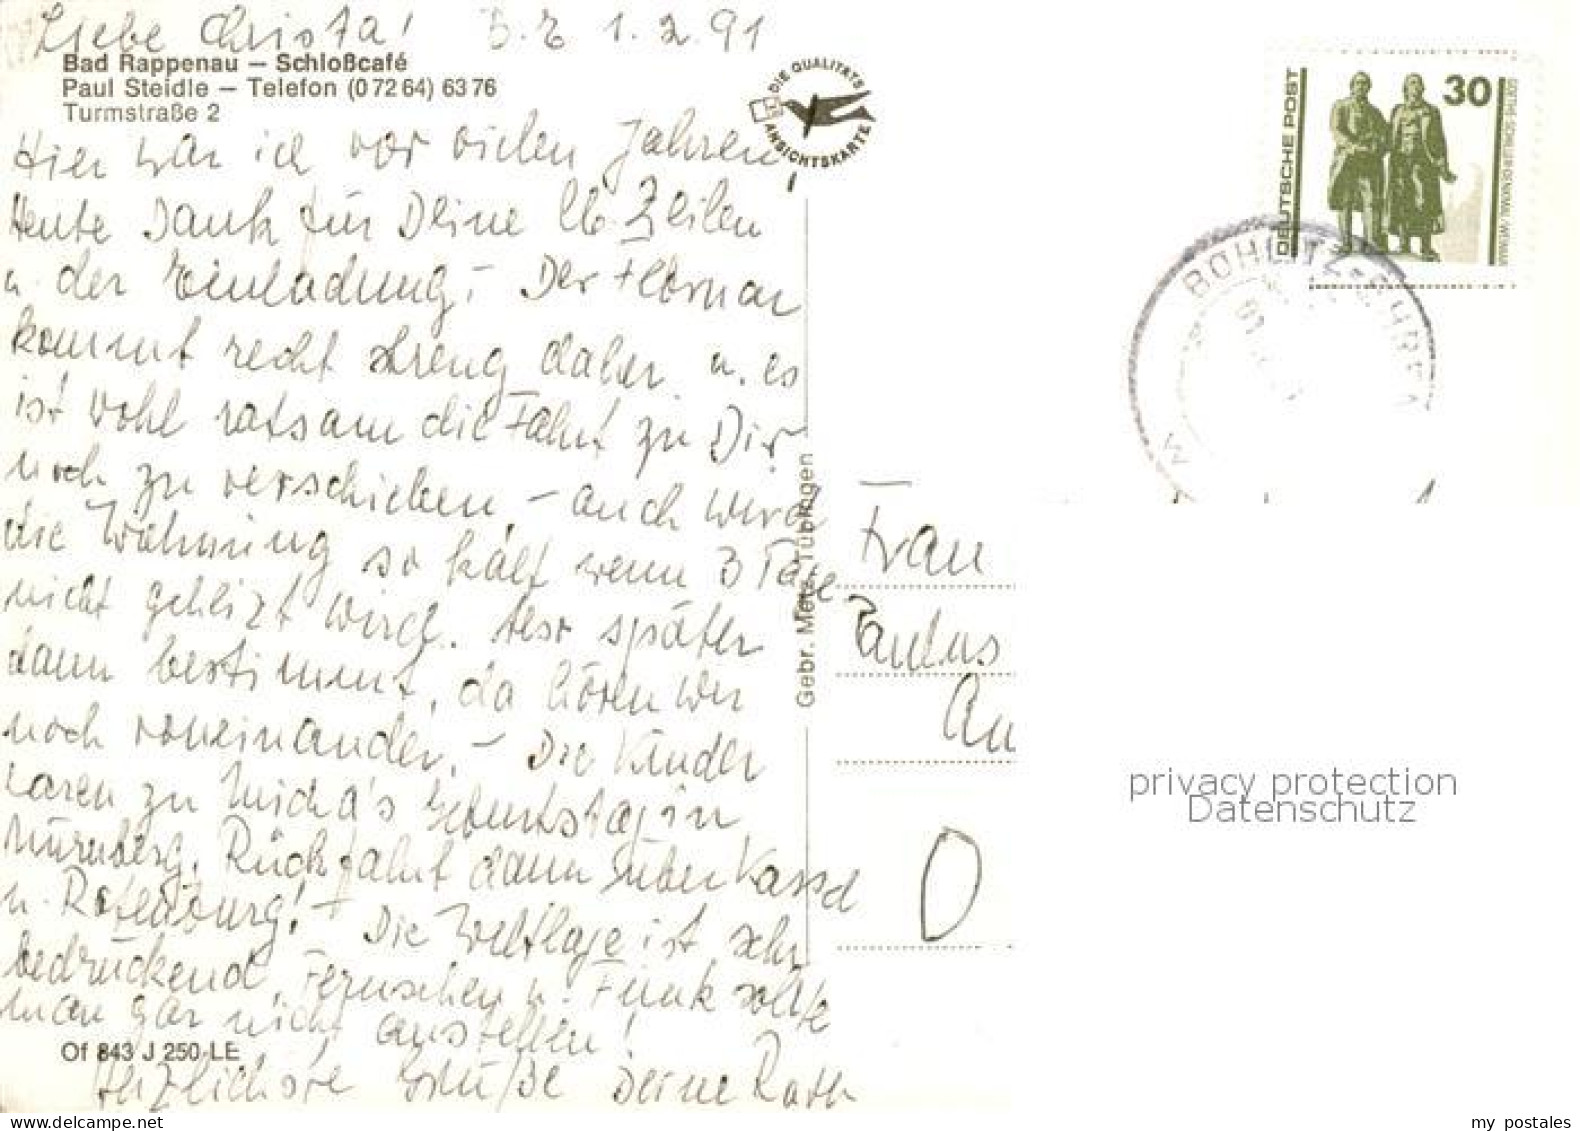 Liebe Christa! B.E 1.2.91
Bad Rappenau – Schloßcafé
Paul Steidle – Telefon (0 72 64) 63 76
Turmstraße 2
DIE QUALITÄTS
ANSICHTSKARTE
Hier war ich vor vielen Jahren!
Heute Dank für Deine lb. Zeilen
u. der Einladung, – Der Februar
kommt recht streng daher u. es
ist wohl ratsam die Fahrt zu Dir
noch zu verschieben, – auch wird
die Wohnung so kalt wenn 3 Tage
nicht geheizt wird. Also später
dann bestimmt, da hören wir
noch voneinander. – Die Kinder
waren zu Micha's Geburtstag in
Nürnberg. Rückfahrt dann über Kassel
u. Rotenburg! – Die Weltlage ist sehr
bedrückend, Fernsehen u. Funk sollte
man gar nicht anstellen!
Herzlichste Grüße Deine Ruth
Of 843 J 250 LE
Gebr. Metz, Tübingen
DEUTSCHE POST
30
GOETHE-SCHILLER-DENKMAL · WEIMAR
BÖHLITZ-EHRE
Frau
Paulus
An
privacy protection
Datenschutz
my postales